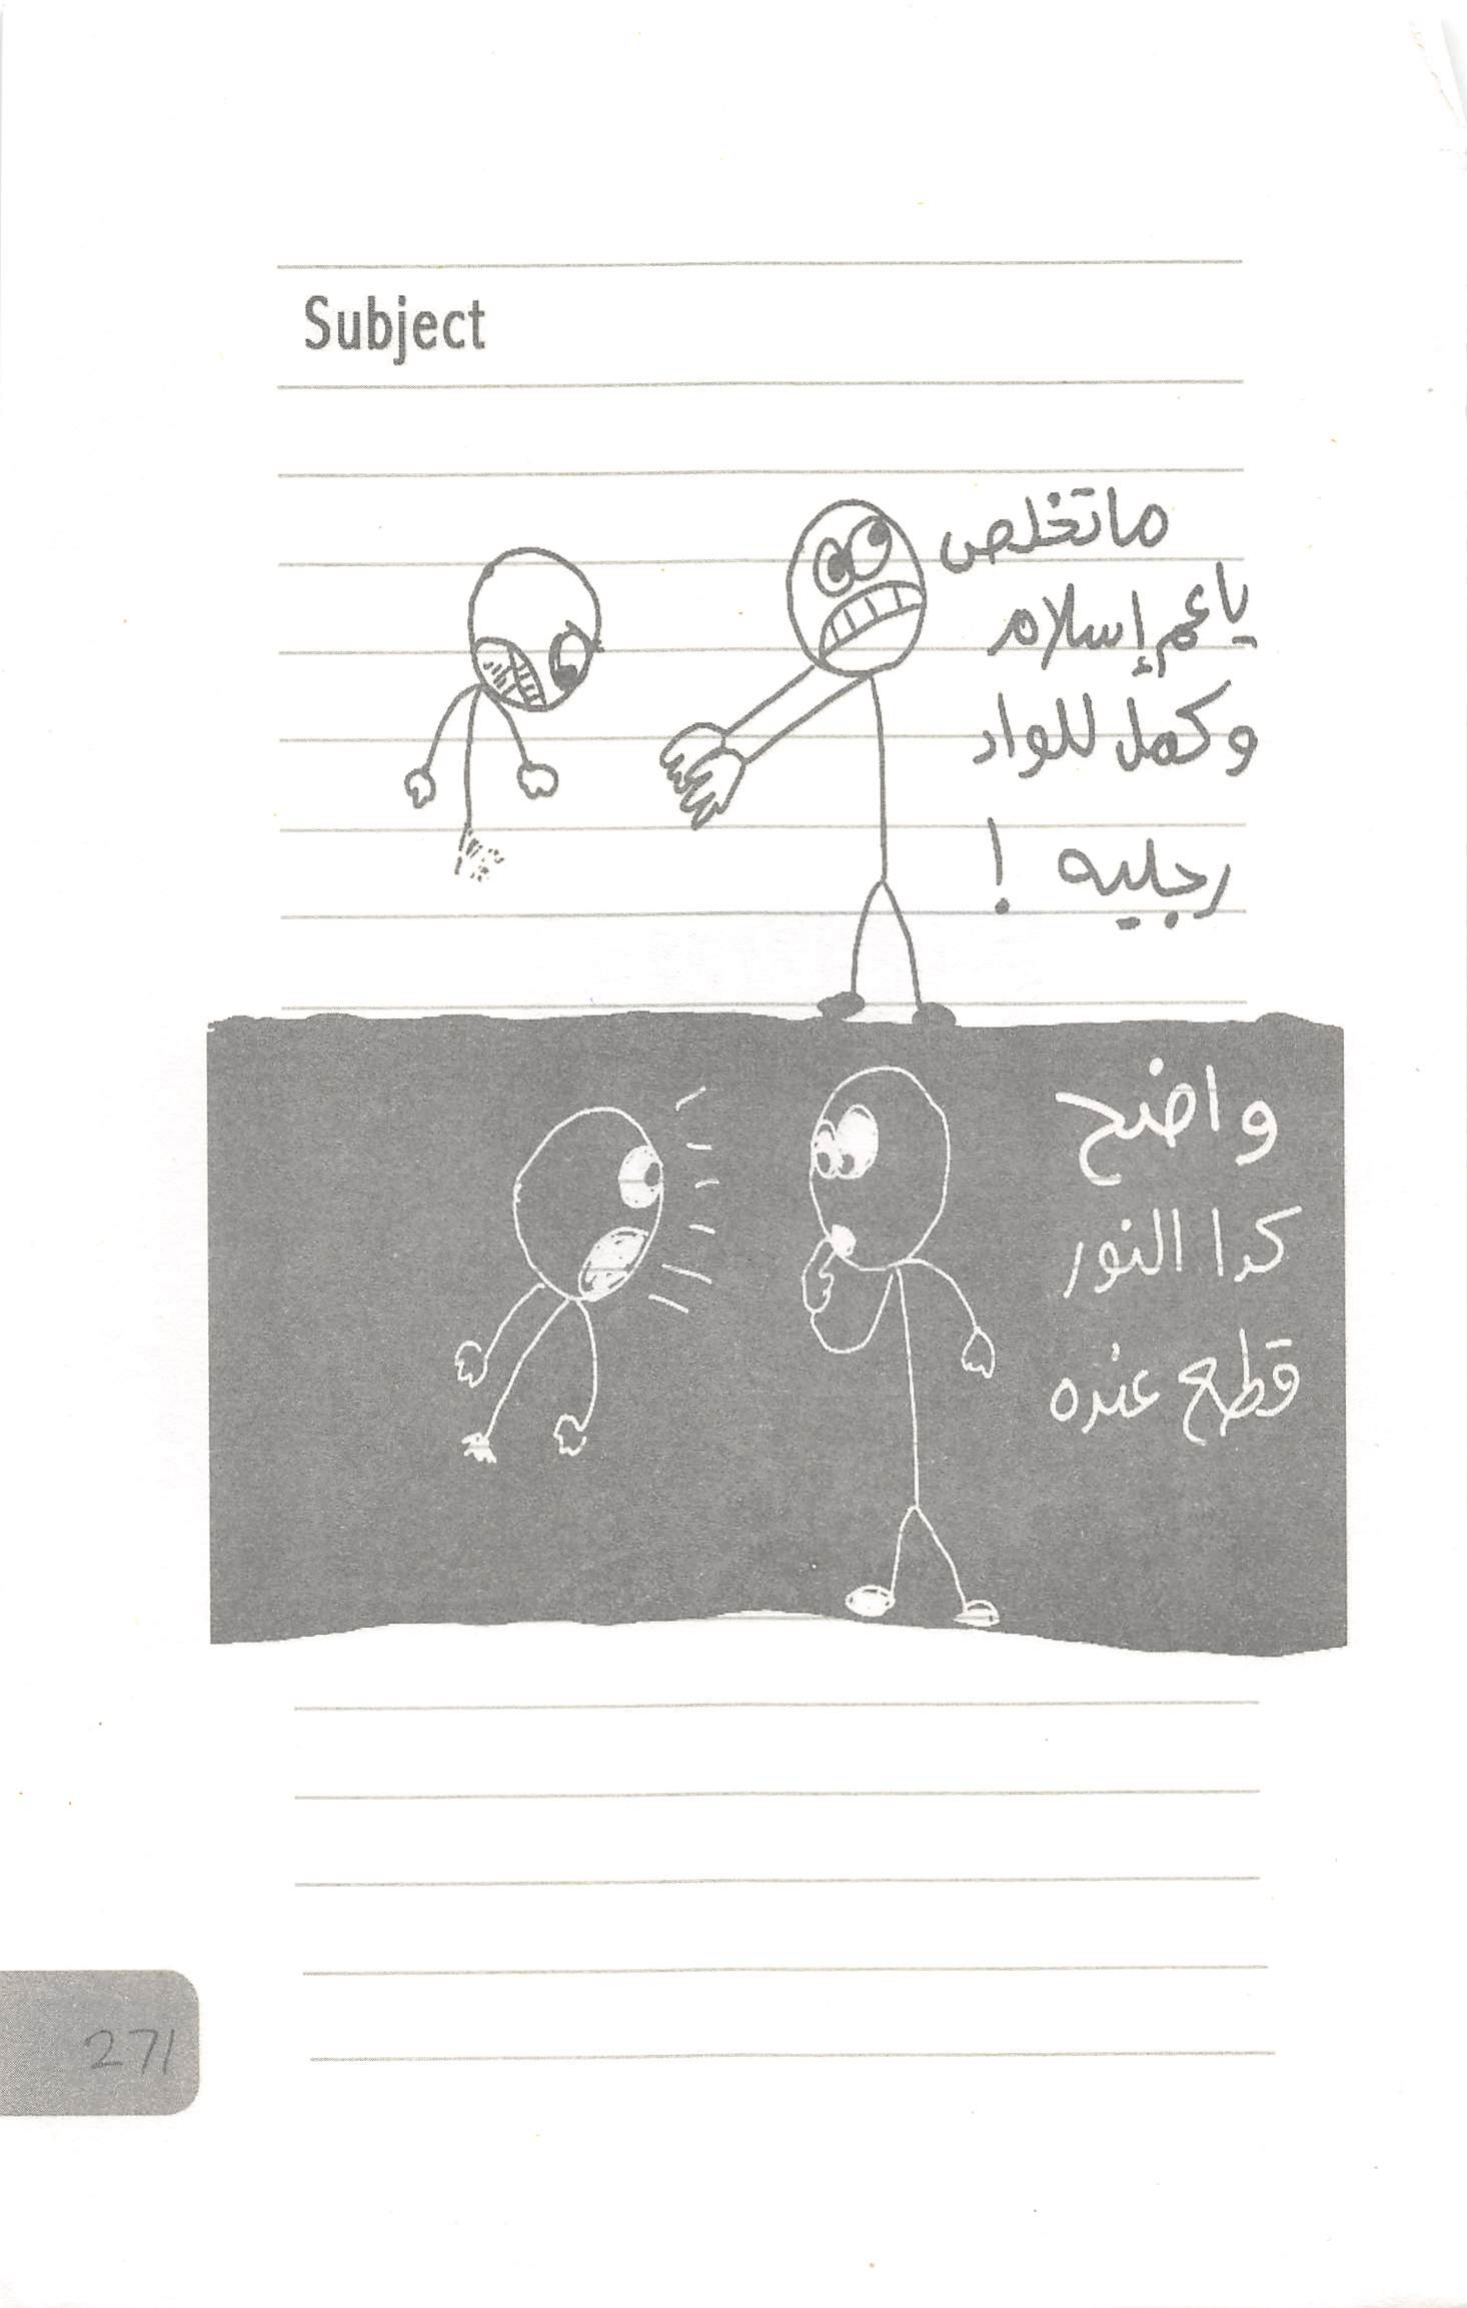 Subject
ماتخلص
ياعم إسلام
وكمل للواد
رجليه !
واضح
كدا النور
قطع عنده
271